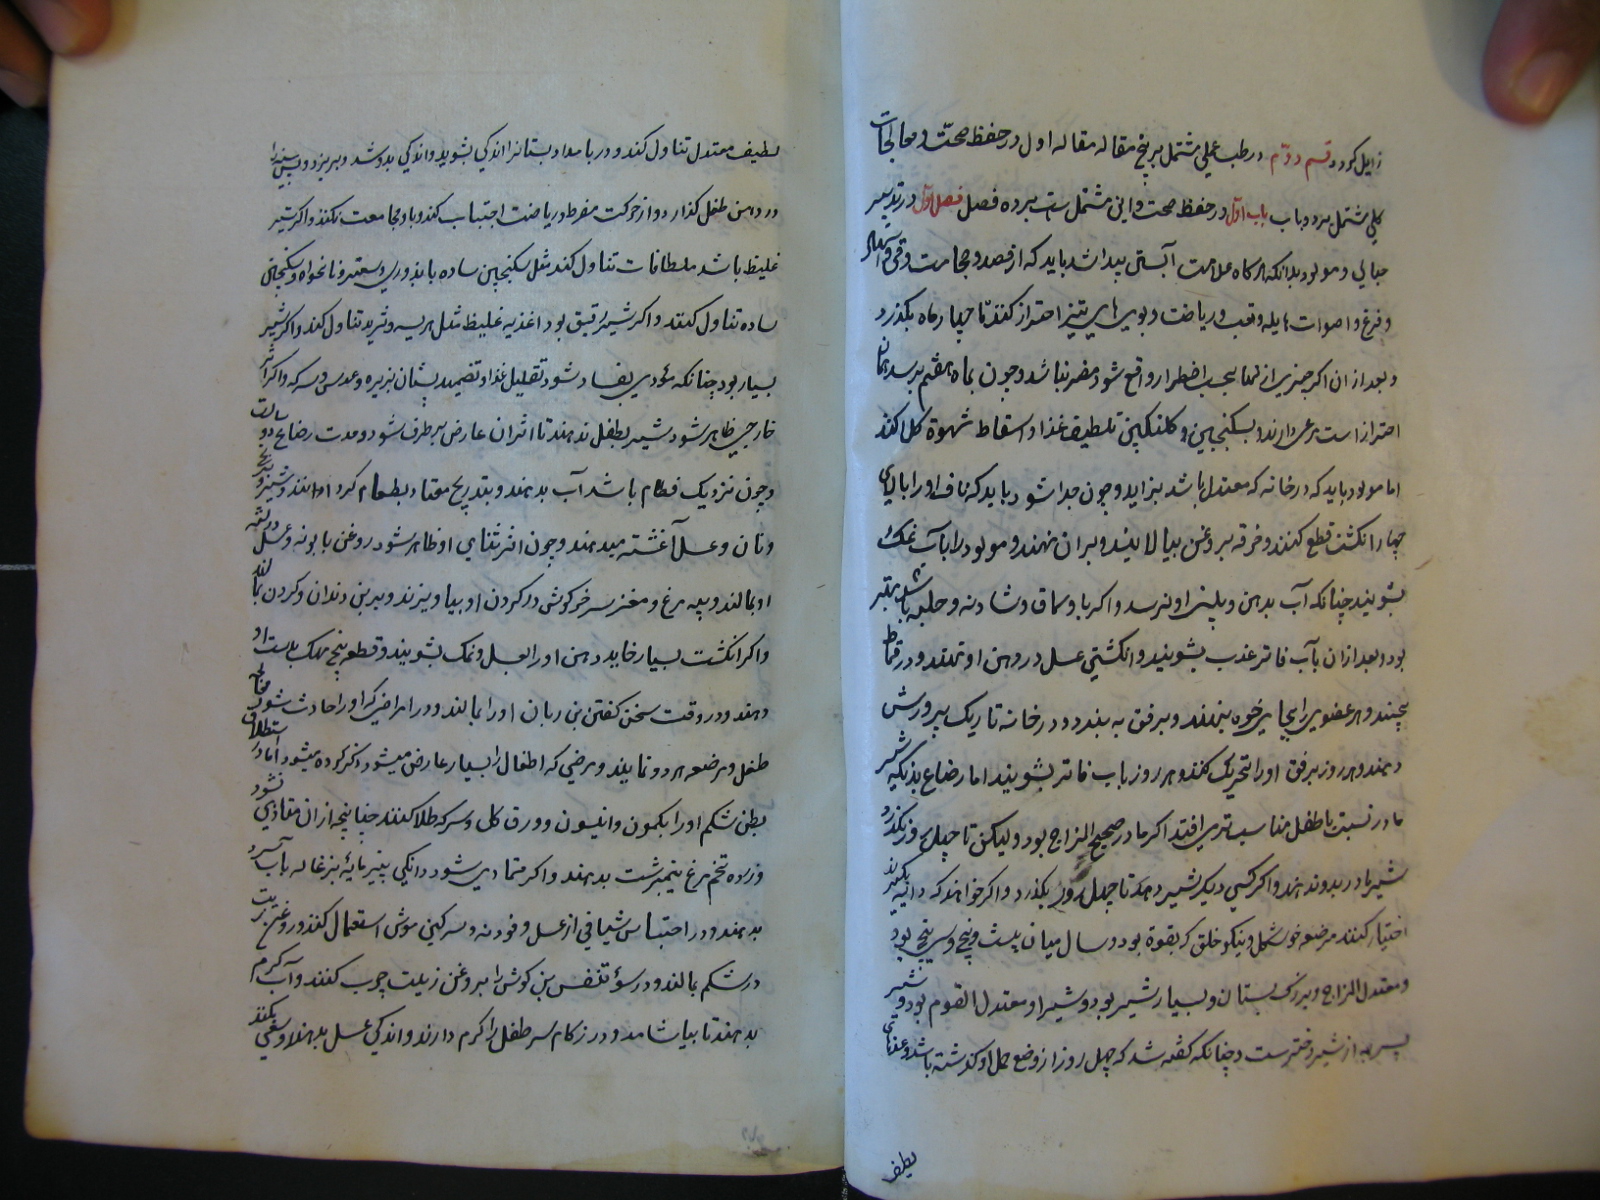 زایل کردد قسم دوّم در طب عملی مشتمل بر پنج مقاله مقاله اول در حفظ صحّت و معالجات
کلی مشتمل بر دو باب باب اوّل در حفظ صحت و این مشتمل ست بر ده فصل فصل اوّل در تدبیر
حبالی و مولود بدانکه هرکاه علامت آبستنی پیدا شد باید که از فصد و حجامت و قی و اسهال
و فزع و اصوات هایله و تعب و ریاضت و بوی های تیز احتراز کنند تا چهار ماه بکذرد
و بعد از ان اکر چیزی از اینها بسبب اضطرار واقع شود مضر نباشد و چون بماه هفتم برسد همان
احتراز است مرعی دارند و بسکنجبین و کلنکبین تلطیف غذا و اسقاط شهوة کل کنند
اما مولود باید که در خانه که معتدل باشد بزاید و چون جدا شود باید که ناف او را بالای
چهار انکشت قطع کنند و خرقه بروغن بیالایند و بران نهند و مولود را بآب نمک
بشویند چنانکه آب بدهن و بینی او نرسد و اکر با و سماق و شادنه و حلبه باشد بهتر
بود و بعد از ان بآب فاتر عذب بشویند و انکشتی عسل در دهن او نهند و در قماط
پیچند و هر عضوی را بجای خود بنهند و برفق به بندند و در خانه تاریک پرورش
دهند و هر روز برفق او را تحریک کنند و هر روز باب فاتر بشویند اما رضاع بدانکه شیر
مادر نسبت با طفل مناسب تر می افتد اکر مادر صحیح المزاج بود و لیکن تا چهل روز نکذرد
شیر مادر بدو ندهند و اکر کسی دیکر شیر دهد تا چهل روز بکذرد و اکر خواهند که دایه بکیرند
اختیار کنند مرضعه خوشکل و نیکو خلق که بقوة بود و سال میان بیست و پنج و سی پنج بود
و معتدل المزاج و بزرک پستان و بسیار شیر بود و شیر او معتدل القوام بود و شیر
پسر به از شیر دختر ست و چنانکه کفته شد که چهل روز از وضع حمل او کذشته باشد و غذای
لطیف
لطیف معتدل تناول کند و در بامداد پستانرا اندکی بشوید و اندکی بدوشد و بریزد و پس
در دهن طفل کذارد و از حرکت مفرط و ریاضت اجتناب کند و با و مجامعت نکنند و اکر شیر
غلیظ باشد ملطفات تناول کند مثل سکنجبین ساده یا بزوری و سعتر و نانخواه و سکنجبین
ساده تناول کنند و اکر شیر رقیق بود اغذیه غلیظ مثل هریسه و ثرید تناول کند و اکر شیر
بسیار بود چنانکه مؤدی بفساد شود تقلیل غذا و تضمید پستان بزیره و عدس و سرکه و اکر اثر
خارجی ظاهر شود شیر بطفل ندهند تا اثر ان عارض برطرف شود و مدت رضاع دو سالست
و چون نزدیک فطام باشد آب بدهند و بتدریج معتاد بطعام کردانند و بتدریج شیر
و نان و عسل آغشته میدهند و چون اثر ثنایا او ظاهر شود روغن بابونه و عسل
او بمالند و پیه مرغ و مغز سر خرکوش در کردن او بیاویزند و بر بن دندان و کردن بمالند
و اکر انکشت بسیار خاید دهن او را بعسل و نمک بشویند و قطعه بیخ مهک بدست او
دهند و در وقت سخن کفتن بن زبان او را بمالند و در امراض که او را حادث شود معالجه
طفل و مرضعه هر دو نمایند و مرضی که اطفال را بسیار عارض میشود ذکر کرده میشود اما در استطلاق
بطن شکم او را بکمون و انیسون و ورق کل و سرکه طلا کنند چنانچه از ان متاذی نشود
و زرده تخم مرغ نیمبرشت بدهند و اکر متمادی شود دانکی پنیر مایهٔ بزغاله بآب سرد
بدهند و در احتباس شیافی از عسل و فودنه و سرکین موش استعمال کنند و روغن زیت
در شکم بمالند و در سؤ تنفس بن کوش را بروغن زیت چرب کنند و آب کرم
بدهند تا بیاشامد و در زکام سر طفل را کرم دارند و اندکی عسل بدهند و سعی کنند